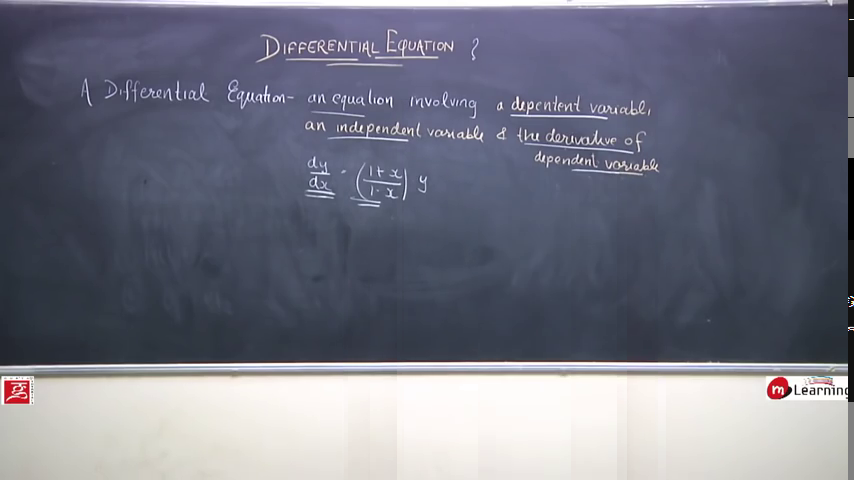 DIFFERENTIAL EQUATION ?
A Differential Equation- an equation involving a depentent variable,
an independent variable & the derivative of
dependent variable
dy/dx = (1+x/1-x) y
m Learning